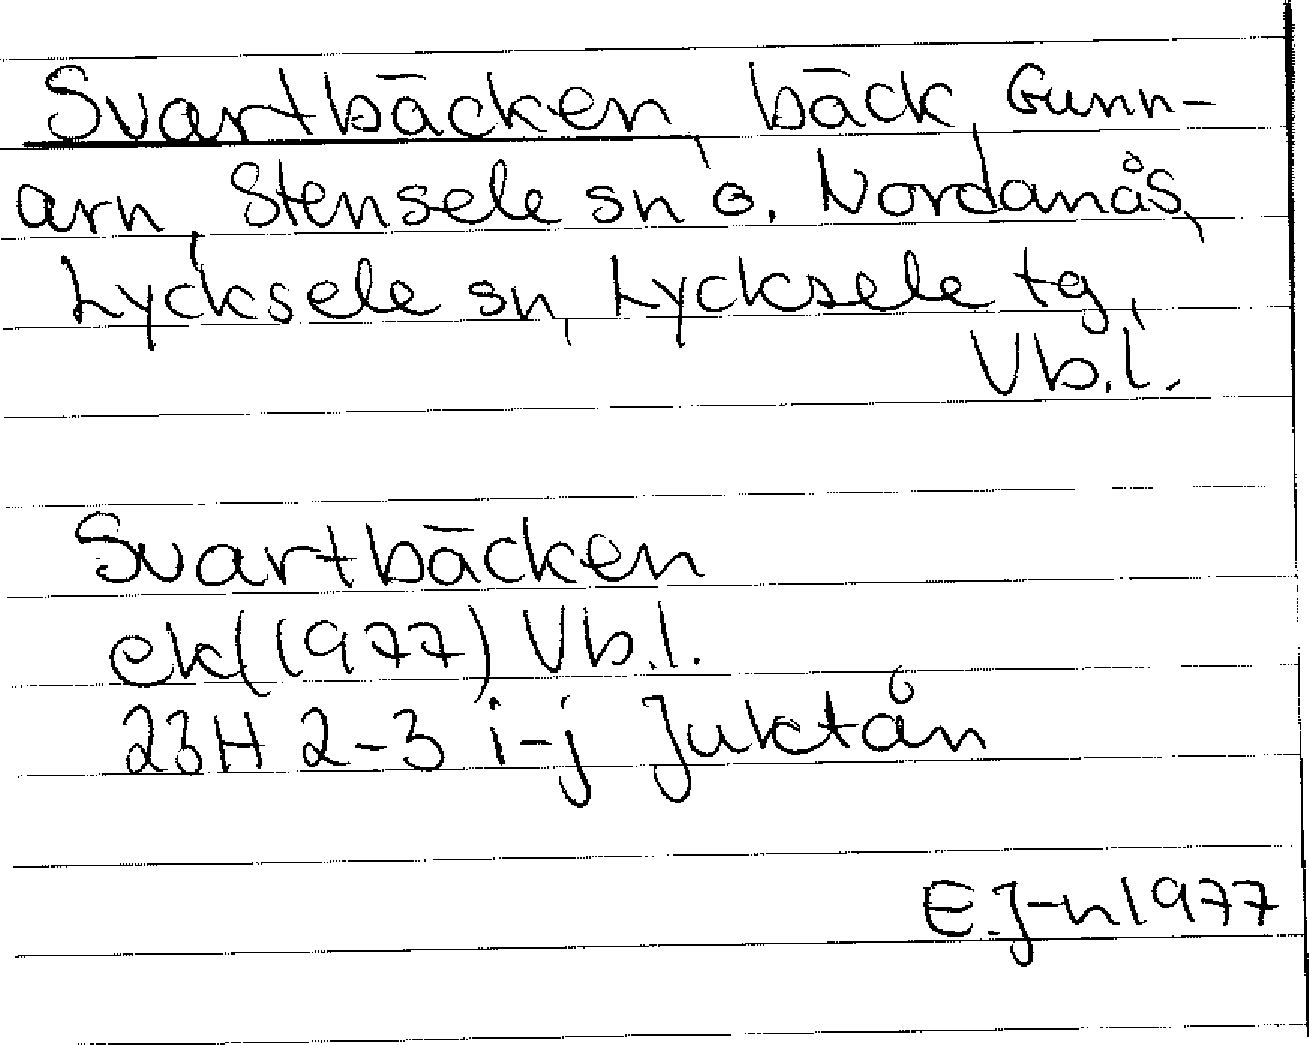 Svartbäcken, bäck, Gunn-
arn, Stensele sn o. Nordanås,
Lycksele sn, Lycksele tg,
Vb.l.
Svartbäcken
ek(1977) Vb.l.
23H 2-3 i-j Juktån
E.J-n 1977